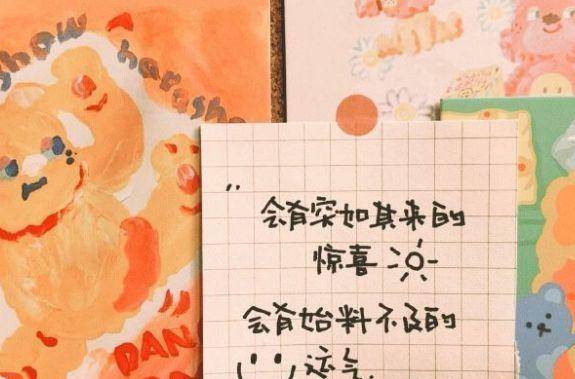 show
harsha
"
会有突如其来的
惊喜
会有始料不及的
运气.
DAN